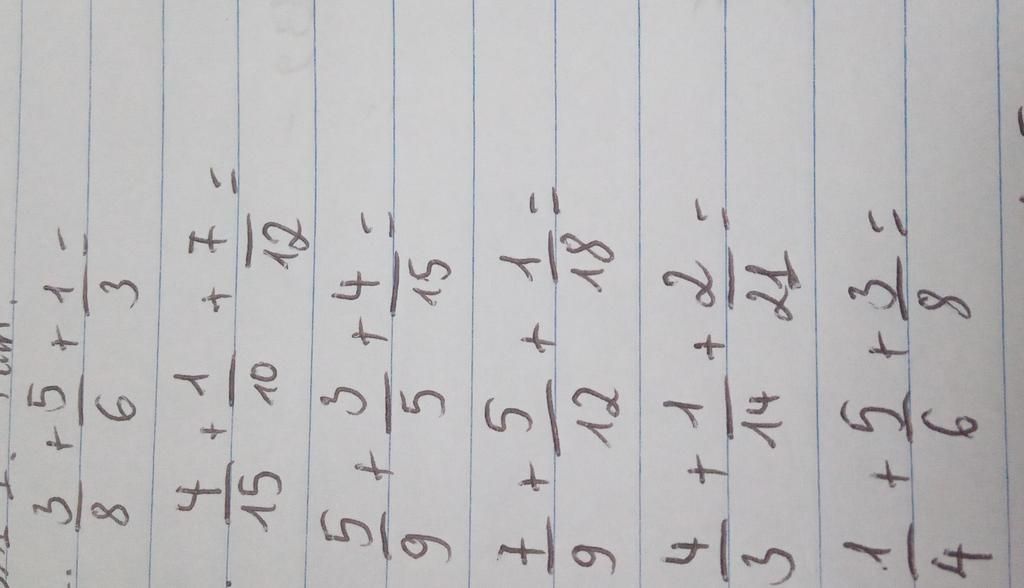 3/8 + 5/6 + 1/3 =
4/15 + 1/10 + 7/12 =
5/9 + 3/5 + 4/15 =
7/9 + 5/12 + 1/18 =
4/3 + 1/14 + 2/21 =
1/4 + 5/6 + 3/8 =